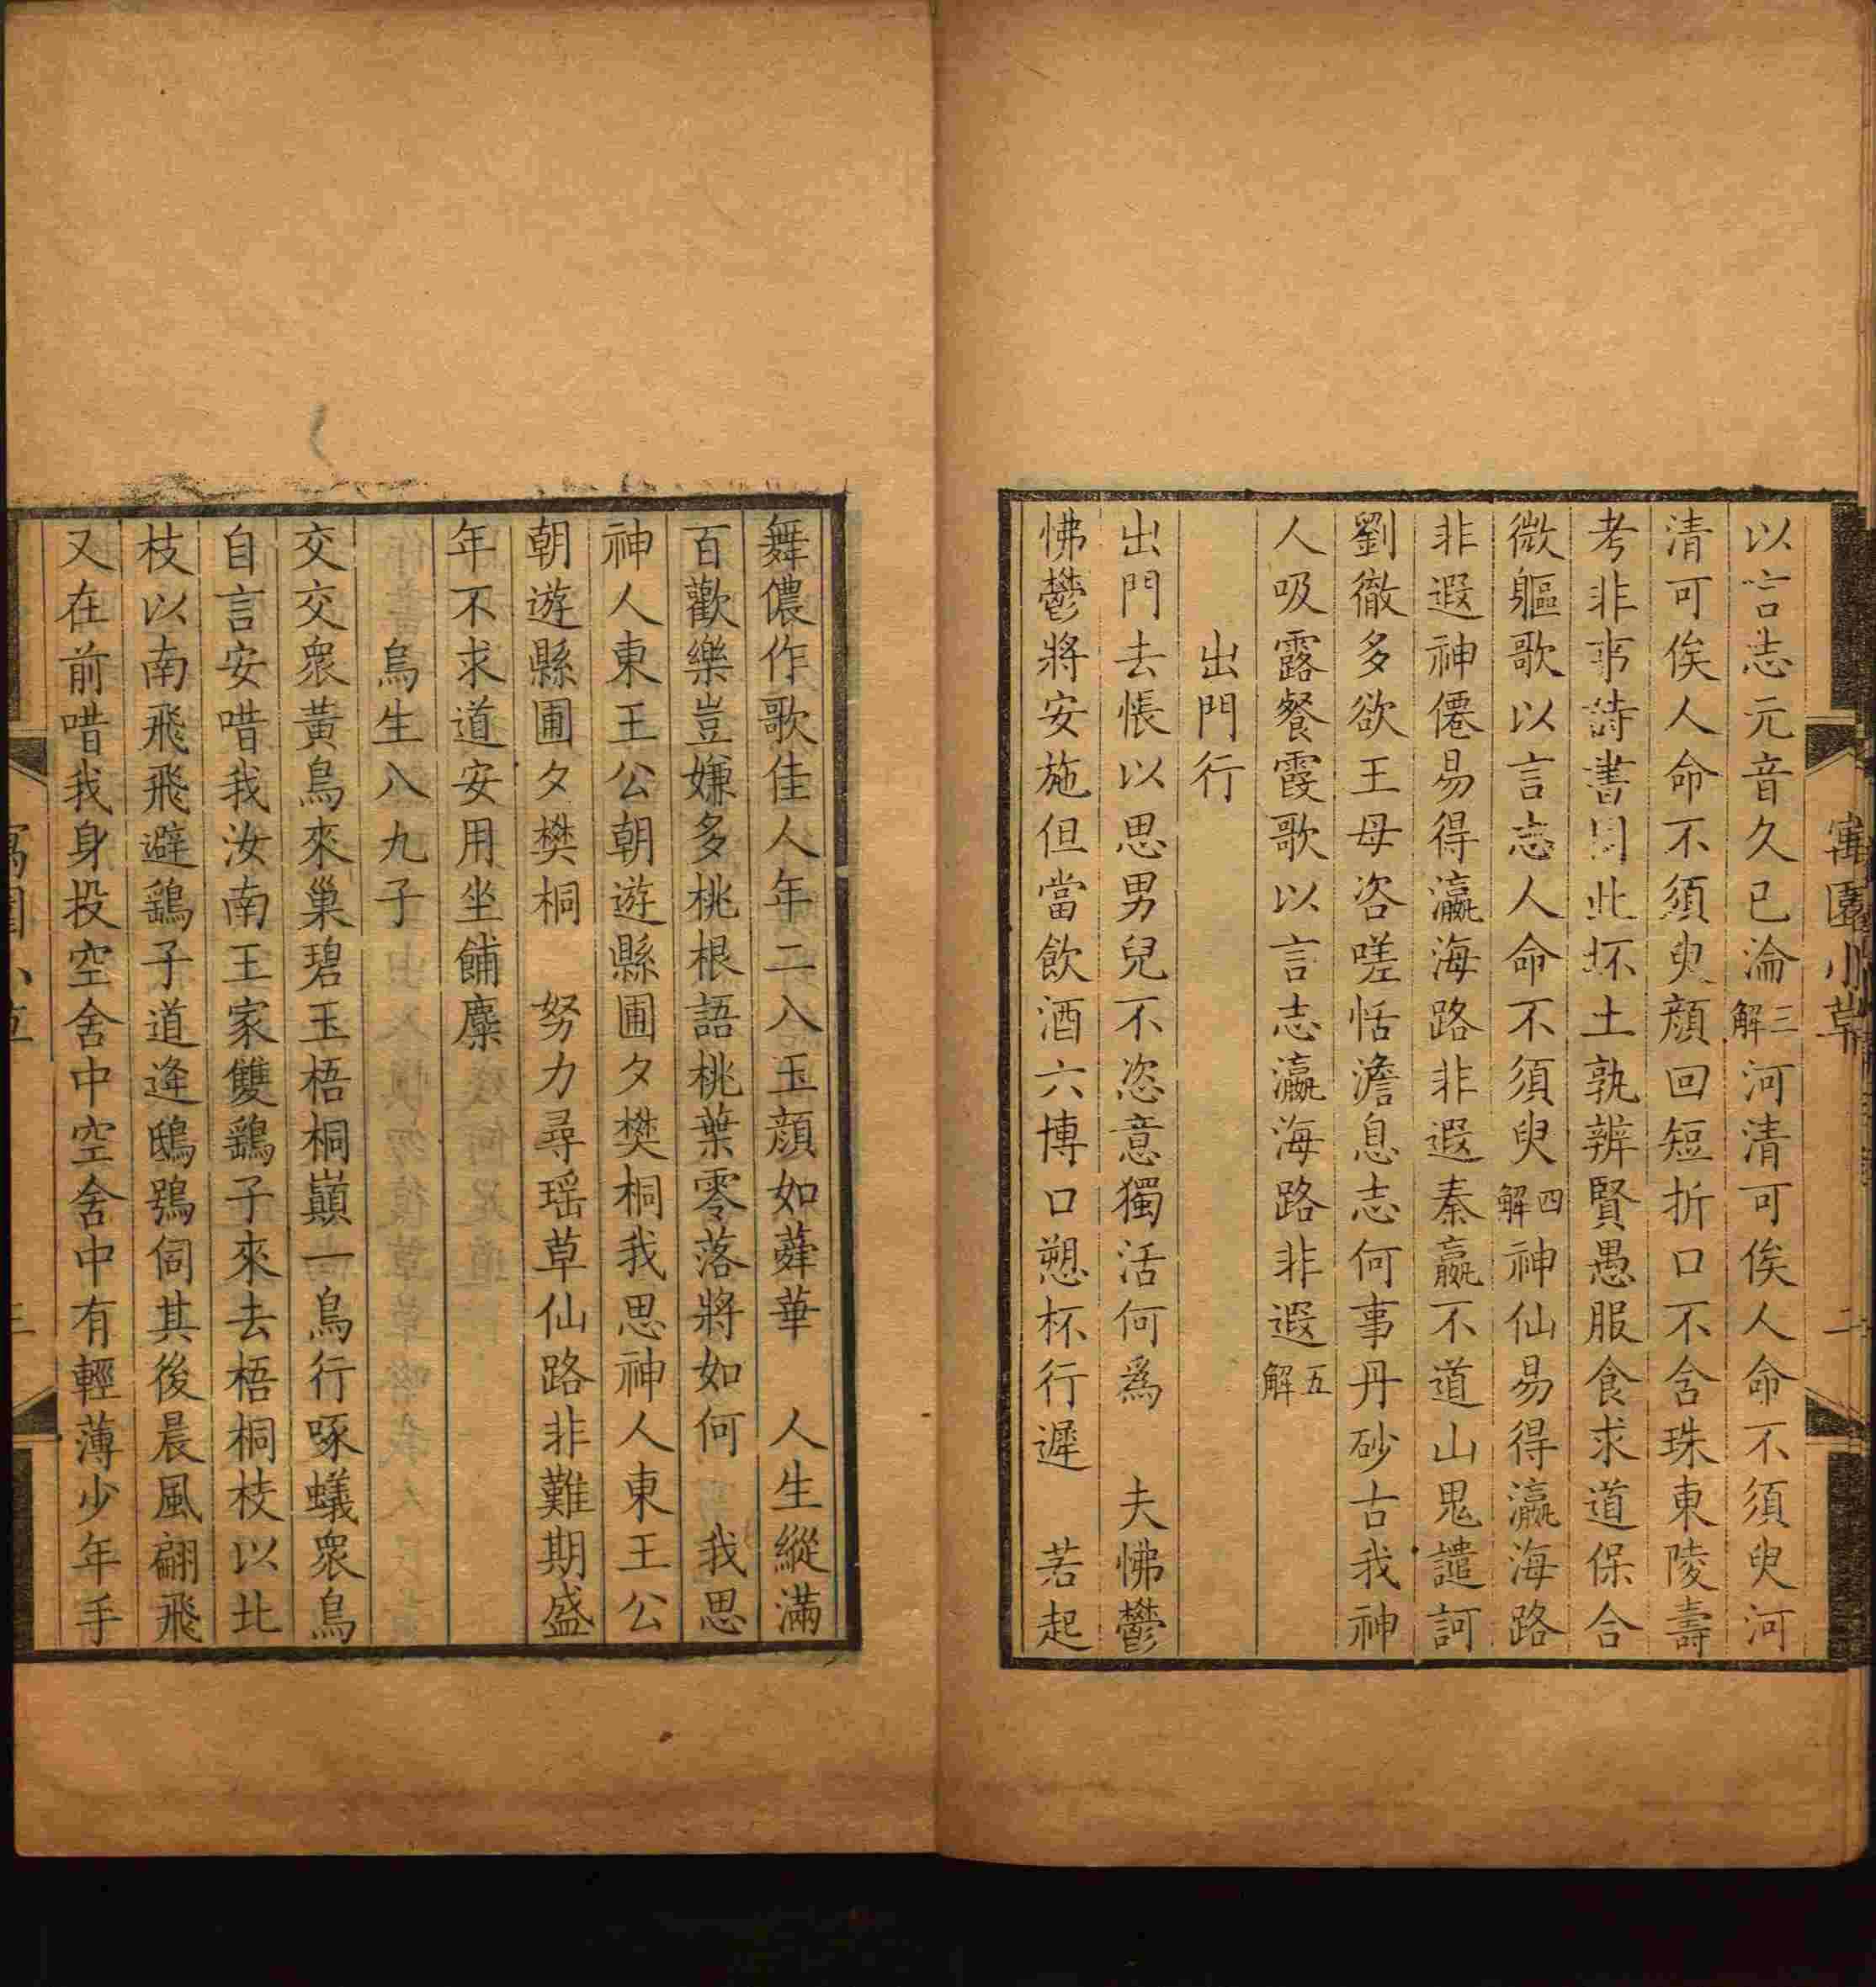 寓園小草
二
以言志元音久已淪三解河清可俟人命不須臾河
清可俟人命不須臾顏回短折口不含珠東陵壽
考非事詩書同此坏土孰辨賢愚服食求道保合
微軀歌以言志人命不須臾四解神仙易得瀛海路
非遐神僊易得瀛海路非遐秦嬴不道山鬼譴訶
劉徹多欲王母咨嗟恬澹息志何事丹砂古我神
人吸露餐霞歌以言志瀛海路非遐五解
出門行
出門去悵以思男兒不恣意獨活何爲 夫怫鬱
怫鬱將安施但當飲酒六博口愬杯行遲 若起
舞儂作歌佳人年二八玉顏如蕣華 人生縱滿
百歡樂豈嫌多桃根語桃葉零落將如何 我思
神人東王公朝遊縣圃夕樊桐我思神人東王公
朝遊縣圃夕樊桐 努力尋瑶草仙路非難期盛
年不求道安用坐餔麋
烏生八九子
交交衆黃鳥來巢碧玉梧桐巔一鳥行啄蟻衆鳥
自言安唶我汝南王家雙鷂子來去梧桐枝以北
枝以南飛飛避鷂子道逄鴟鴞伺其後晨風翩飛
又在前唶我身投空舍中空舍中有輕薄少年手
寓園小草
三